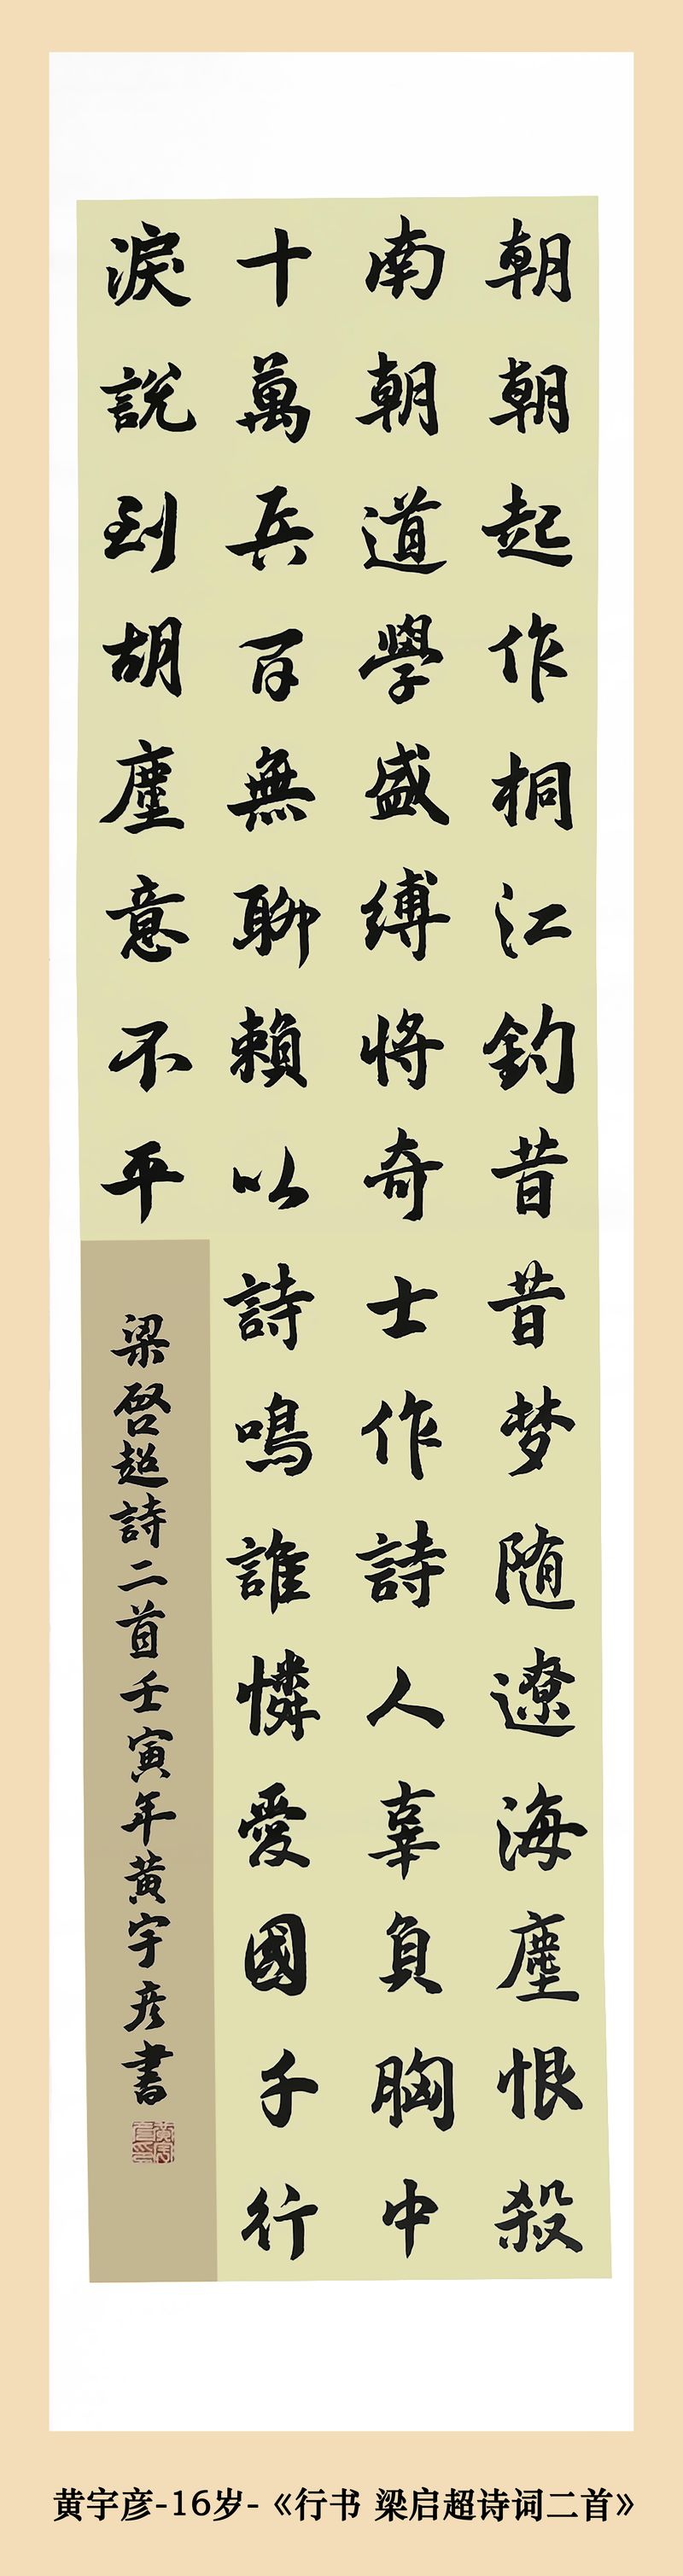 朝朝起作桐江釣昔昔梦随遼海塵恨殺
南朝道學盛縛將奇士作詩人辜負胸中
十萬兵百無聊賴以詩鳴誰憐愛國千行
淚說到胡塵意不平
梁啓超詩二首壬寅年黃宇彦書
黄宇彦-16岁-《行书 梁启超诗词二首》